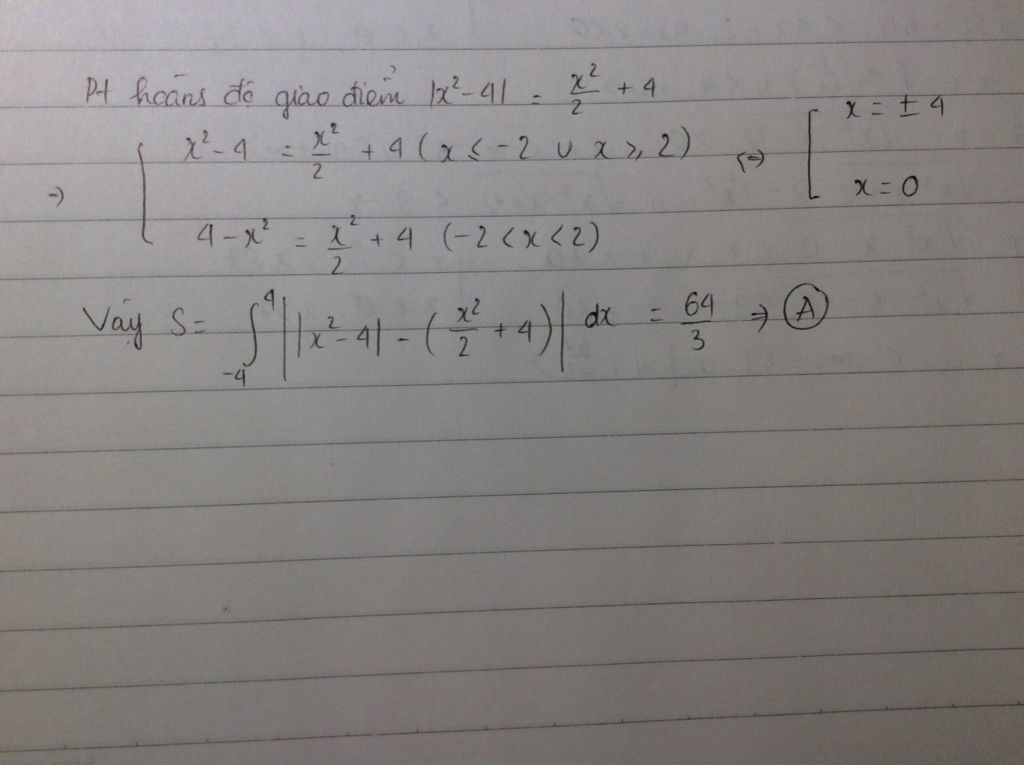 Pt hoành độ giao điểm |x² - 4| = x²/2 + 4
=> { x² - 4 = x²/2 + 4 (x ≤ -2 ∪ x ≥ 2) <=> [ x = ± 4
4 - x² = x²/2 + 4 (-2 < x < 2) x = 0
Vậy S = ∫_{-4}^{4} | |x² - 4| - (x²/2 + 4) | dx = 64/3 => Ⓐ